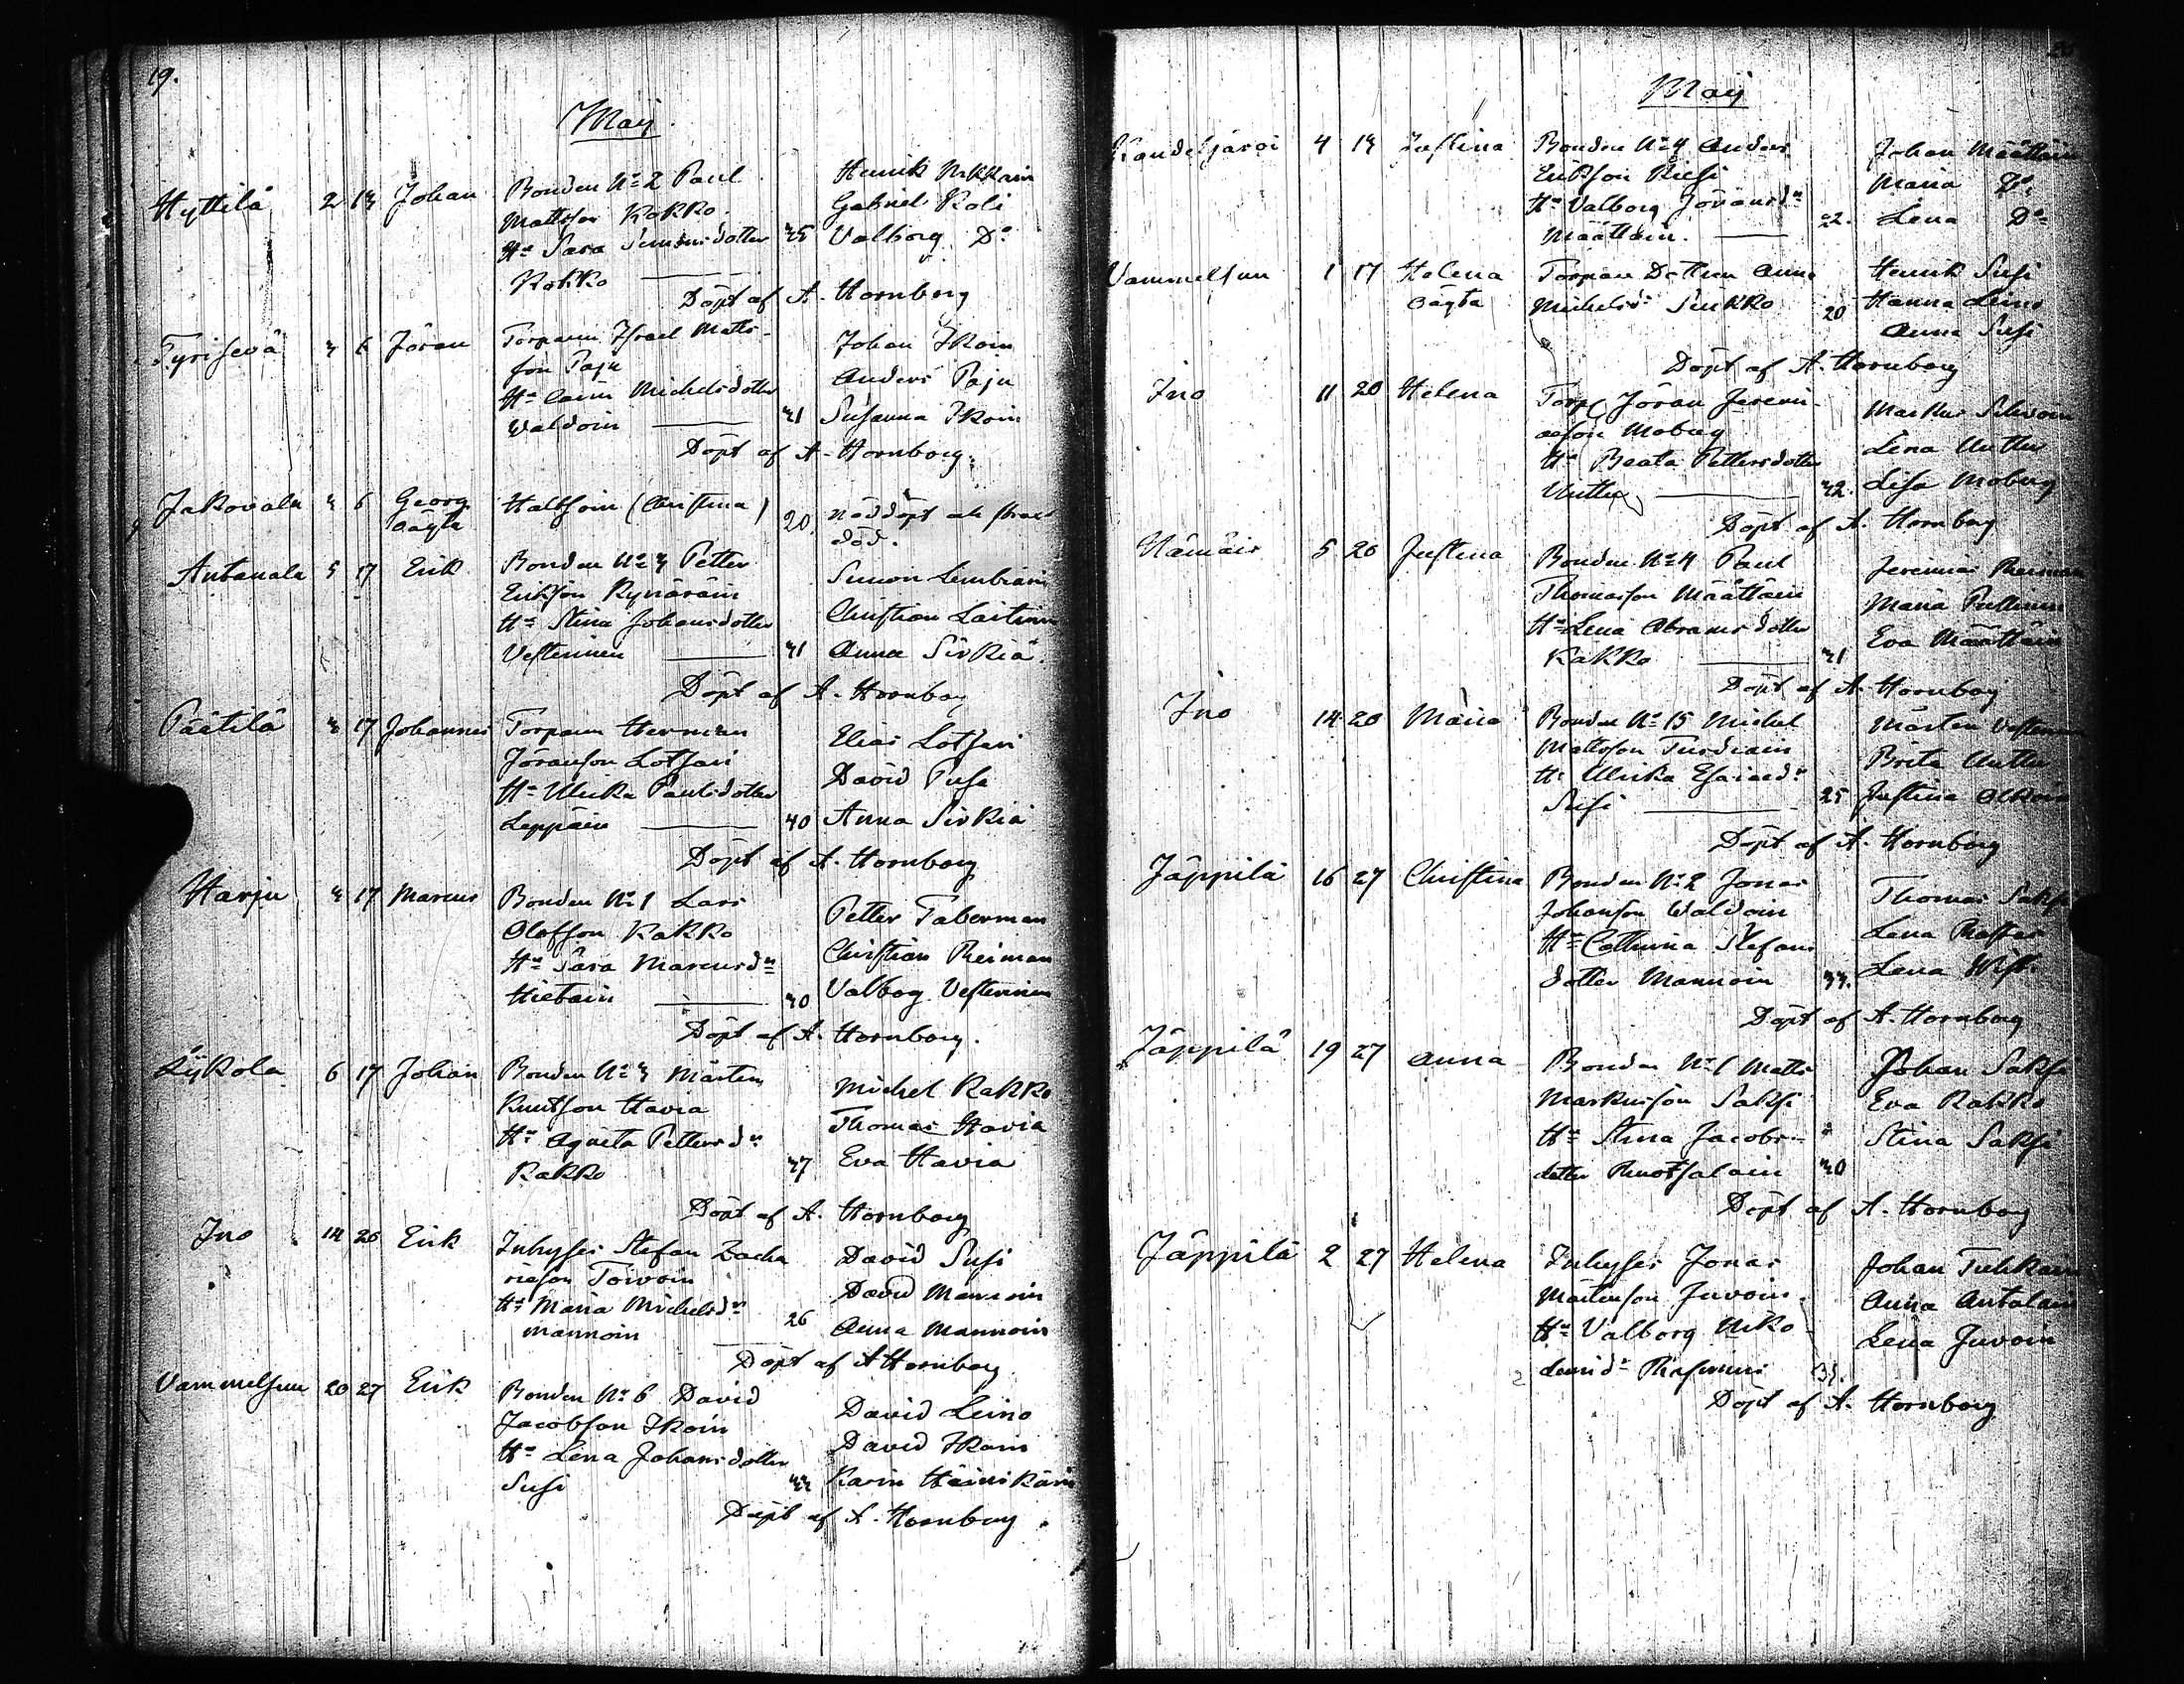 19.
Maij.
Hyttilä 2 13 Johan Bonden No 2 Paul
Mattsson Kokko
Hu Sara Simonsdotter 35
Kokko
Henrik Ukkoin
Gabriel Koli
Valborg Do
Döpt af A. Hornborg
Tyrisevä 3 6 Jöran Torparen Israel Matts-
son Paju
Hu Carin Michelsdotter
Waldoin 31
Johan Ikoin
Anders Paju
Susanna Ikoin
Döpt af A. Hornborg.
Jakovala 3 6 Georg Hattsoin (Christina) 20 nöddöpt och strax
oägta död.
Antanala 5 17 Erik Bonden No 3 Petter
Eriksson Kynäräin
Hu Stina Johansdotter
Vesterinen 31
Simon Lembiäin
Christian Laitinen
Anna Sirkiä.
Döpt af A. Hornborg
Päätilä 3 17 Johannes Torparen Herman
Jöransson Lotsari
Hu Ulrika Paulsdotter
Leppäin 40
Elias Lotsari
David Pusa
Anna Sirkiä
Döpt af A. Hornborg
Harju 3 17 Marcus Bonden No 1 Lars
Olofsson Kakko
Hu Sara Marcusdr
Hietain 30
Petter Taberman
Christian Reiman
Valborg Vesterinen
Döpt af A. Hornborg.
Liikola 6 17 Johan Bonden No 3 Mårten
Knutsson Havia
Hu Agneta Pettersdr
Kakko 37
Michel Kakko
Thomas Havia
Eva Havia
Döpt af A. Hornborg
Ino 14 26 Erik Inhyses Stefan Zacha
riasson Toivoin
Hu Maria Michelsdr
Mannoin 26
David Susi
David Mannoin
Anna Mannoin
Döpt af A Hornborg
Vammelsuu 20 27 Erik Bonden No 6 David
Jacobsson Ikoin
Hu Lena Johansdotter
Susi 33
David Leino
David Ikoin
Karin Häiniköin
Döpt af A. Hornborg.
Maij
Kandeljärvi 4 13 Justina Bonden No 4 Anders
Eriksson Riesi
Hu Valborg Jöransdr
Määttäin. 22.
Johan Määttäin
Maria Do
Lena Do
Vammelsuu 1 17 Helena Torpare Dottren Anna
oägta Michelsdr Sukko 20
Henrik Susi
Hanna Leino
Anna Susi
Döpt af A. Hornborg
Ino 11 20 Helena Torp. Jöran Jeremi-
aeson Moberg
Hu Beata Pettersdotter
Uutter 32.
Markus
Lena Uutter
Lisa Moberg
Döpt af A. Hornborg
Hämäis 5 20 Justina Bonden No 4 Paul
Thomasson Määttäin
Hu Lena Abramsdotter
Kakko 31
Jeremias Reiman
Maria Pullinen
Eva Määttäin
Döpt af A. Hornborg
Ino 14 20 Maria Bonden No 15 Michel
Mattsson Turdiain
Hu Ulrika Esaiaedr
Susi 25
Mårten Vesterinen
Brita Uutter
Justina Olkoin
Döpt af A. Hornborg
Jäppilä 16 27 Christina Bonden No 2 Jonas
Johansson Waldoin
Hu Cathrina Stefans
dotter Mannoin 33.
Thomas Saksi
Lena
Lena
Döpt af A. Hornborg
Jäppilä 19 27 Anna Bonden No 1 Matts
Markusson Saksi
Hu Stina Jacobs-
dotter Ruotsalain 30
Johan Saksi
Eva Kakko
Stina Saksi
Döpt af A. Hornborg
Jäppilä 2 27 Helena Inhyses Jonas
Mårtensson Juvoin.
Hu Valborg Niko-
demidr
Johan Tuhkain
Anna Antalain
Lena Juvoin
Döpt af A. Hornborg